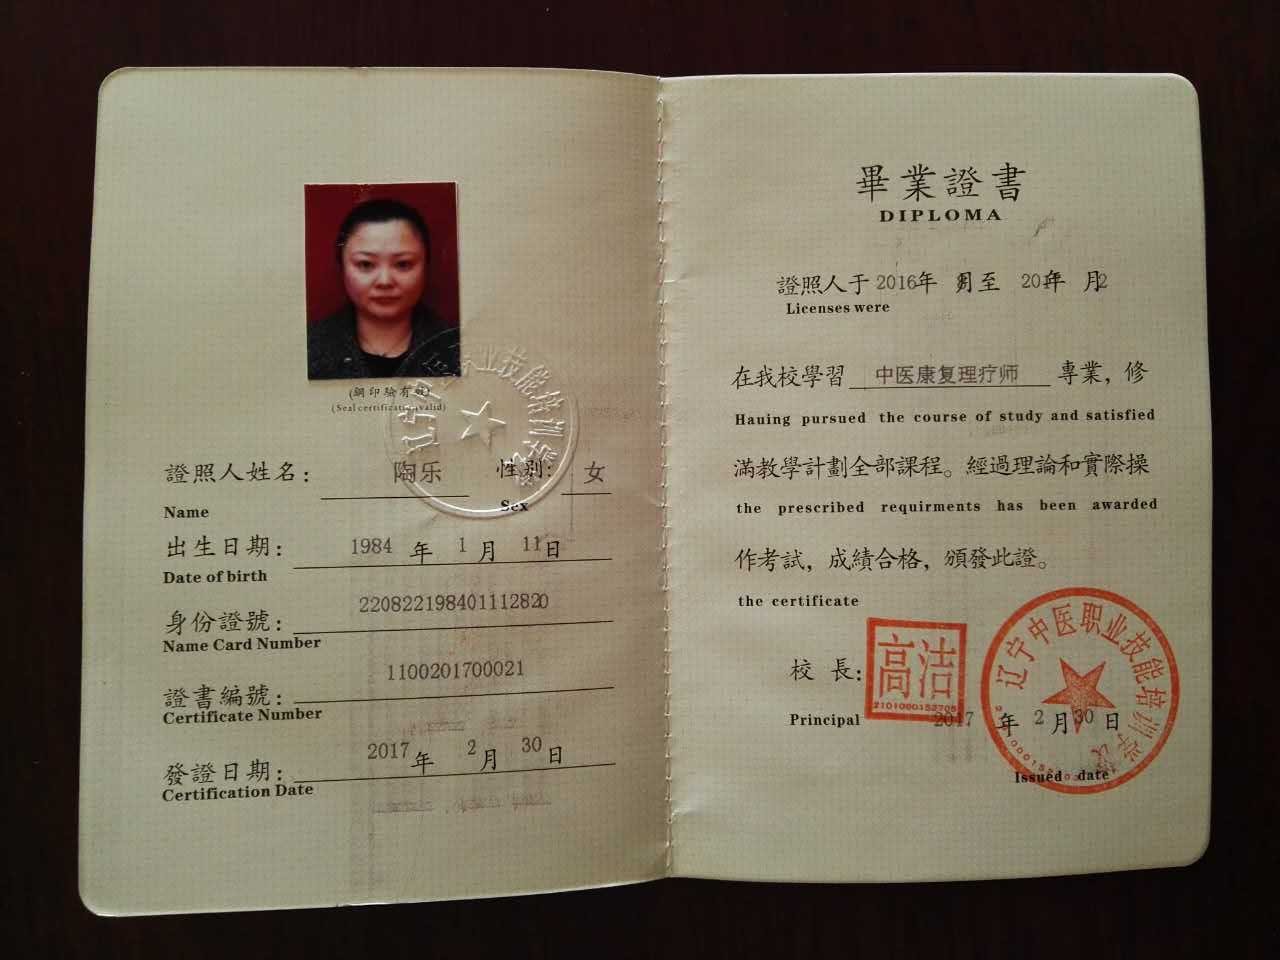 (鋼印驗有效)
(Seal certificate valid)
辽宁中医职业技能培训学校
證照人姓名: 陶乐 性别: 女
Name Sex
出生日期: 1984 年 1 月 11 日
Date of birth
身份證號: 220822198401112820
Name Card Number
證書編號: 1100201700021
Certificate Number
發證日期: 2017 年 2 月 30 日
Certification Date
畢業證書
DIPLOMA
證照人于 2016年 月至 20 年 月2
Licenses were
在我校學習 中医康复理疗师 專業，修
Hauing pursued the course of study and satisfied
滿教學計劃全部課程。經過理論和實際操
the prescribed requirments has been awarded
作考試，成績合格，頒發此證。
the certificate
校 長: 高洁
2101000152705
Principal 2017 年 2 月 30 日
Issued date
辽宁中医职业技能培训学校